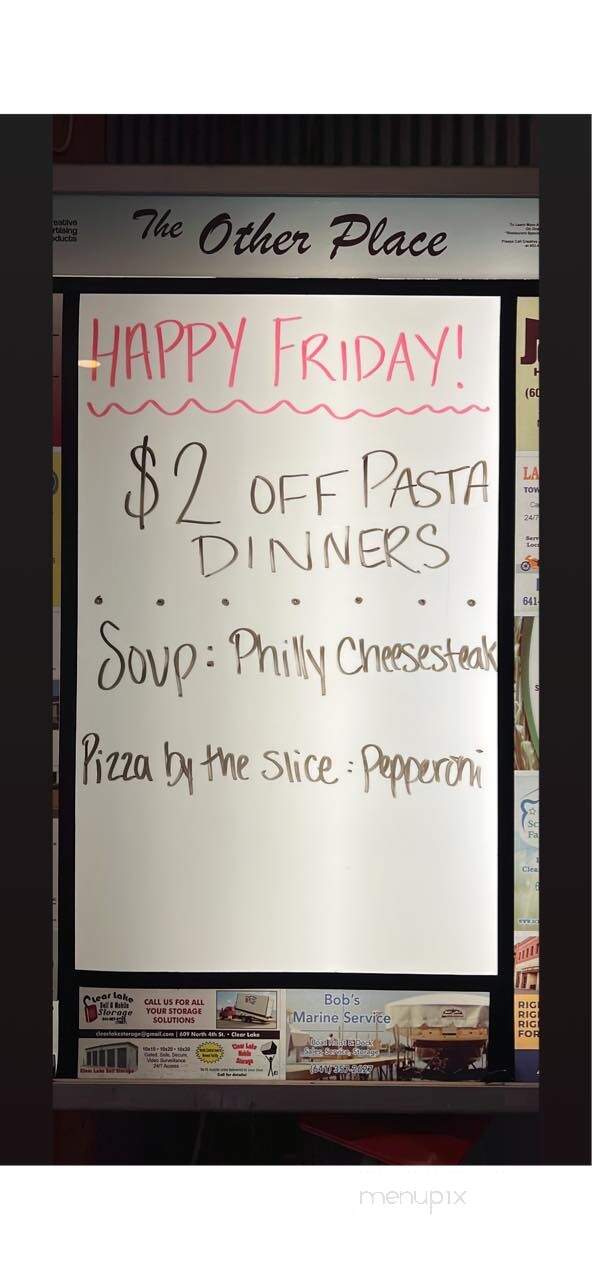 The Other Place
HAPPY FRIDAY!
$2 OFF PASTA
DINNERS
Soup: Philly Cheesesteak
Pizza by the slice: Pepperoni
Clear Lake
Self & Mobile
Storage
CALL US FOR ALL
YOUR STORAGE
SOLUTIONS
clearlakestorage@gmail.com | 609 North 4th St. • Clear Lake
10x10 • 10x20 • 10x30
Gated, Safe, Secure,
Video Surveillance
24/7 Access
Clear Lake Self Storage
Clear Lake
Mobile
Storage
Call for details!
Bob's
Marine Service
Boat Hoist & Dock
Sales, Service, Storage
LA
TOW
24/7
641-
(60
RIG
RIG
RIG
FOR
menupix